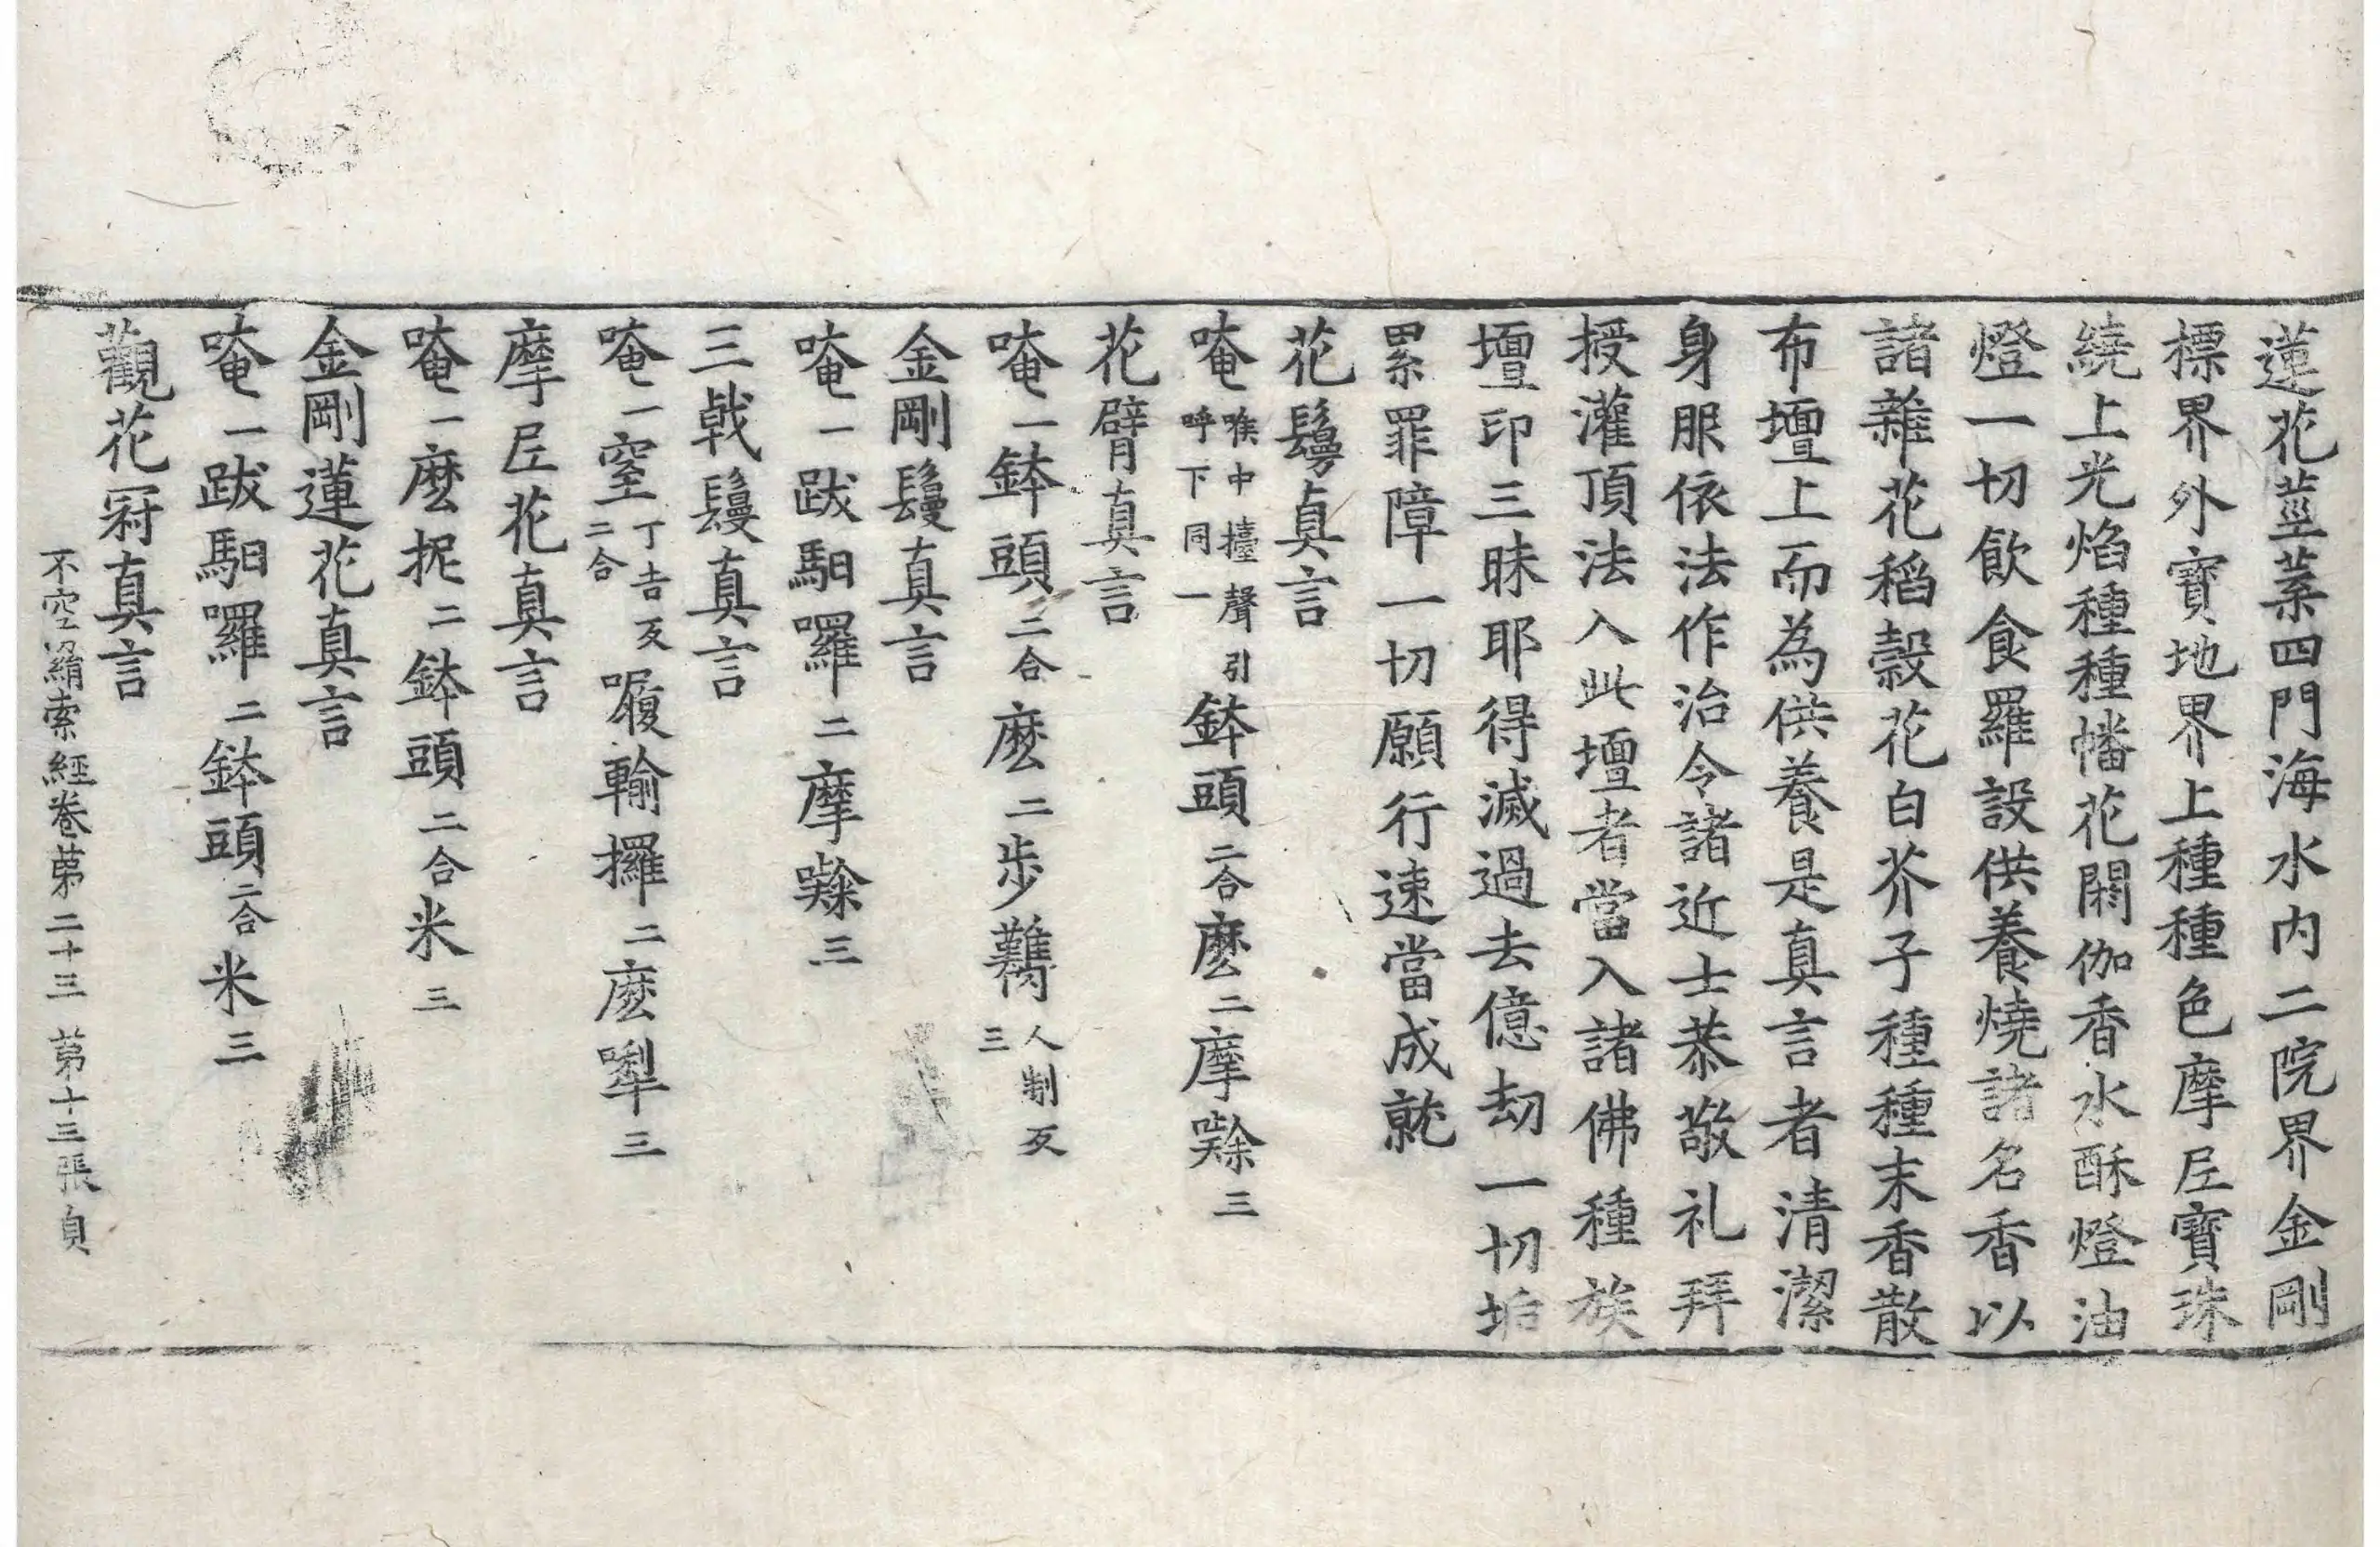 蓮花莖葉四門海水内二院界金剛
標界外寶地界上種種色摩尼寶珠
繞上光焰種種幡花閼伽香水酥燈油
燈一切飲食羅設供養燒諸名香以
諸雜花稻縠花白芥子種種末香散
布壇上而為供養是真言者清潔
身服依法作治令諸近士恭敬礼拜
授灌頂法入此壇者當入諸佛種族
壇印三昧耶得滅過去億劫一切垢
累罪障一切願行速當成就
花鬘真言
唵喉中擡聲引呼下同一鉢頭二合麽二摩㘑三
花臂真言
唵一鉢頭二合麽二步鸈人制反三
金剛鬘真言
唵一跋馹囉二摩㘑三
三戟鬘真言
唵一窒丁吉反二合㗚輸攞二麽㘑三
摩尼花真言
唵一麽抳二鉢頭二合米三
金剛蓮花真言
唵一跋馹囉二鉢頭二合米三
觀花冠真言
不空羂索經卷苐二十三 苐十三張 貞